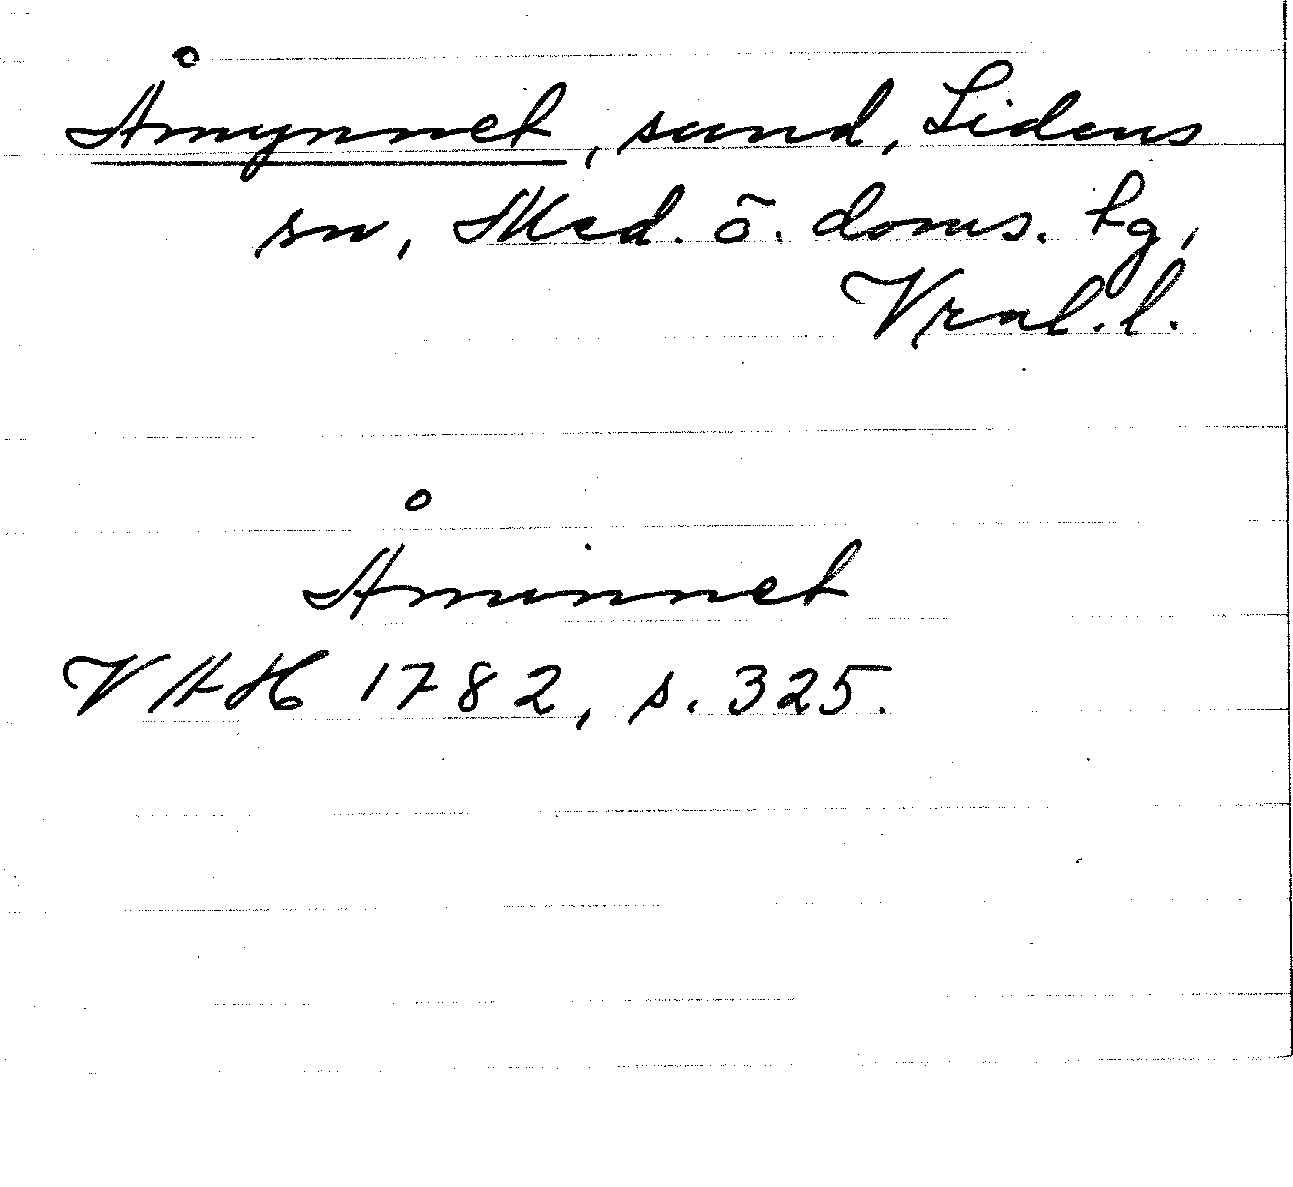 Åmynnet, sund, Lidens
sn, Med. ö. doms. hg,
Vrnl. l.
Åminnet
VAH 1782, s. 325.